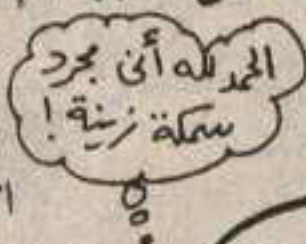 الحمد لله أنى مجرد
سمكة زينة !